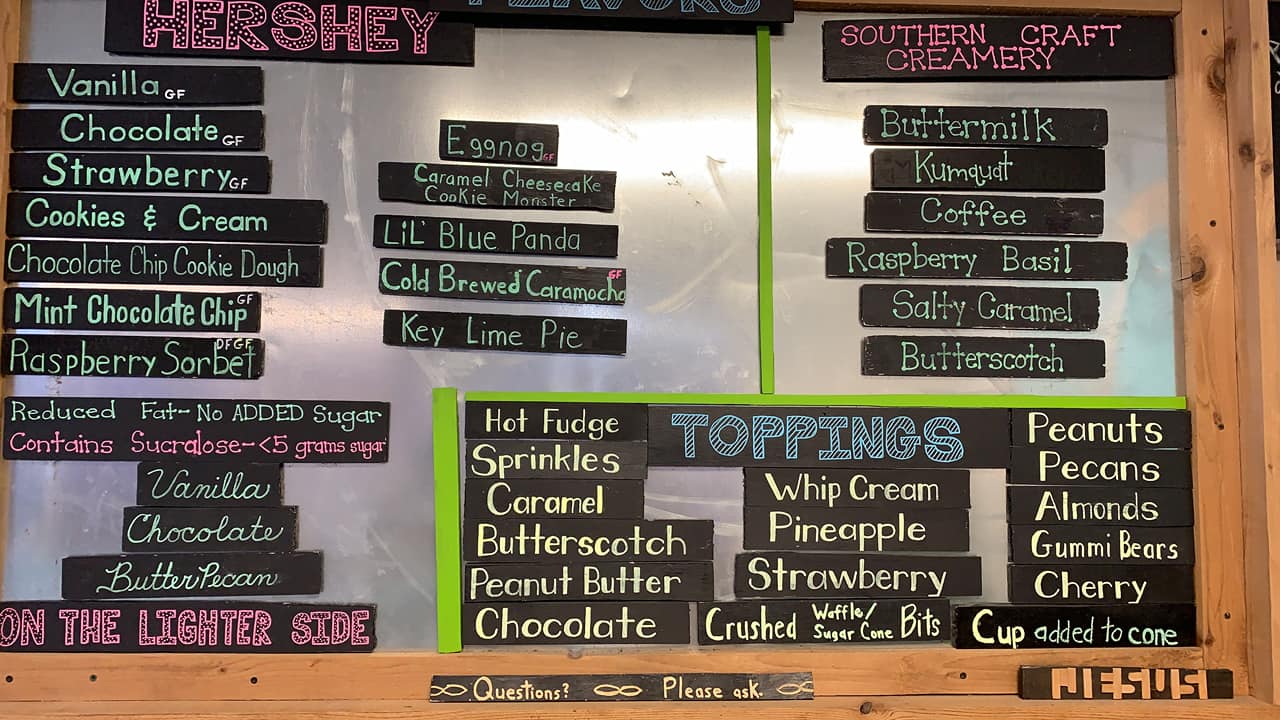 FLAVORS
HERSHEY
Vanilla GF
Chocolate GF
Strawberry GF
Cookies & Cream
Chocolate Chip Cookie Dough
Mint Chocolate Chip GF
Raspberry Sorbet DFGF
Eggnog GF
Caramel Cheesecake
Cookie Monster
LiL' Blue Panda
Cold Brewed Caramocha GF
Key Lime Pie
SOUTHERN CRAFT
CREAMERY
Buttermilk
Kumquat
Coffee
Raspberry Basil
Salty Caramel
Butterscotch
Reduced Fat-No ADDED Sugar
Contains Sucralose-<5 grams sugar
Vanilla
Chocolate
Butter Pecan
ON THE LIGHTER SIDE
TOPPINGS
Hot Fudge
Sprinkles
Caramel
Butterscotch
Peanut Butter
Chocolate
Whip Cream
Pineapple
Strawberry
Crushed Waffle/
Sugar Cone Bits
Peanuts
Pecans
Almonds
Gummi Bears
Cherry
Cup added to cone
Questions? Please ask.
JESUS